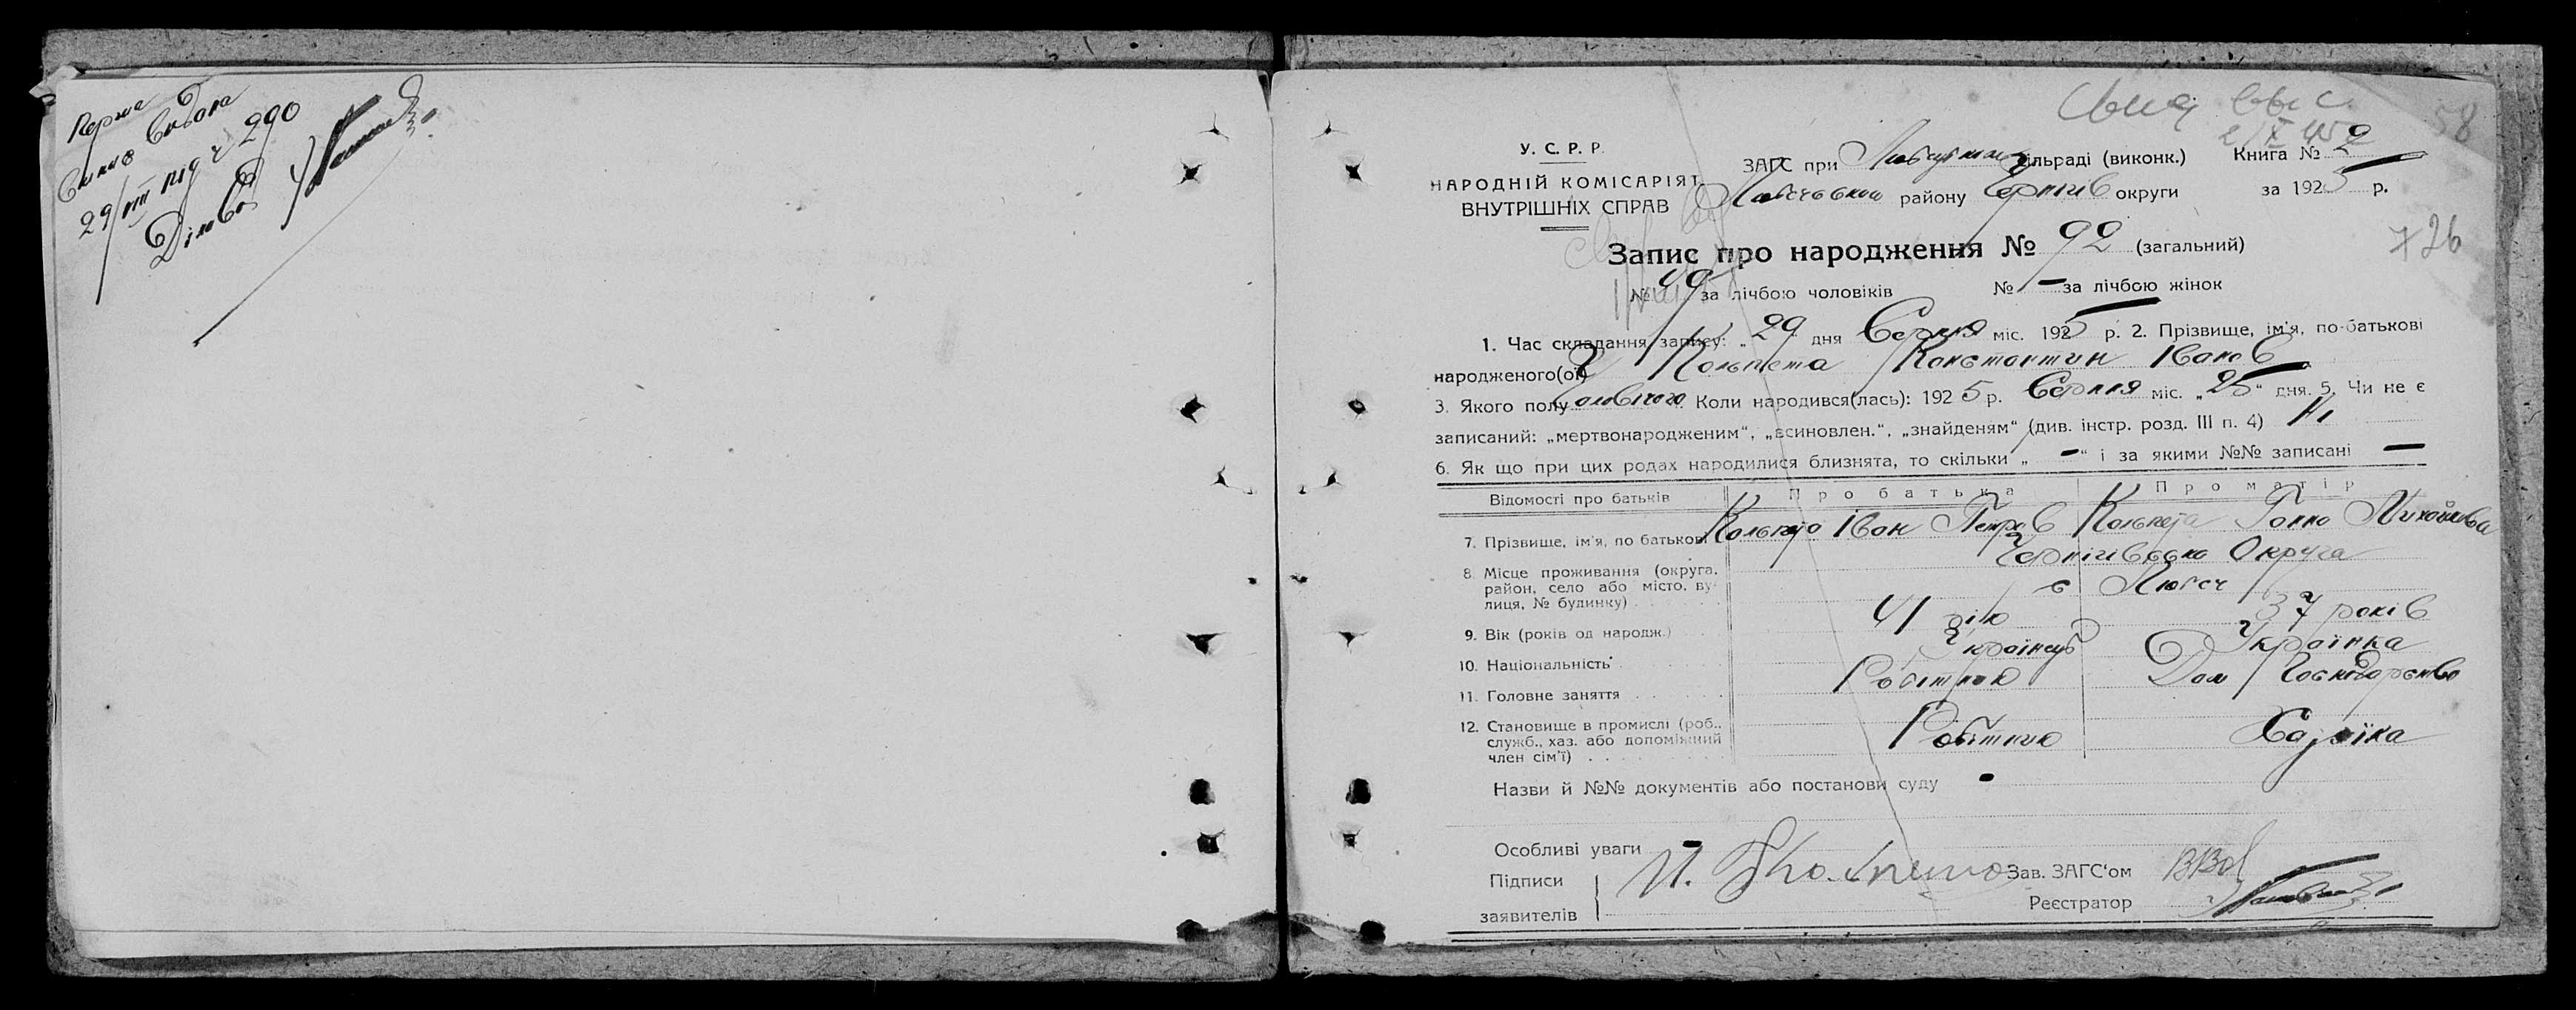 Перша
виписка видана
29/VIII під ч 290
Діловод
58
У. С. Р. Р.
НАРОДНІЙ КОМІСАРІЯТ
ВНУТРІШНІХ СПРАВ
ЗАГС при сільраді (виконк.) Книга № 2
району Чернігів округи за 1925 р.
726
Запис про народження № 92 (загальний)
№ 49 за лічбою чоловіків № – за лічбою жінок
1. Час складання запису: „29" дня Серпня міс. 1925 р. 2. Прізвище, ім'я, по-батькові
народженого(ої) Константин Іванов
3. Якого полу Чоловічого. Коли народився(лась): 1925 р. Серпня міс. „25" дня. 5. Чи не є
записаний: „мертвонародженим", „всиновлен.", „знайденям" (див. інстр. розд. III п. 4) Ні
6. Як що при цих родах народилися близнята, то скільки „–" і за якими №№ записані –
Відомості про батьків Про батька Про матір
7. Прізвище, ім'я, по батькові Іван Петров Ганна Михайлова
8. Місце проживання (округа, район, село або місто, вулиця, № будинку) Чернігівська Округа
с Любеч
9. Вік (років од народж.) 41 рік 37 років
10. Національність Українець Українка
11. Головне заняття Робітник Дом Господарство
12. Становище в промислі (роб., служб., хаз. або допоміжний член сім'ї) Робітник Хазяїка
Назви й №№ документів або постанови суду –
Особливі уваги –
Підписи
заявителів
Зав. ЗАГС'ом
Реєстратор